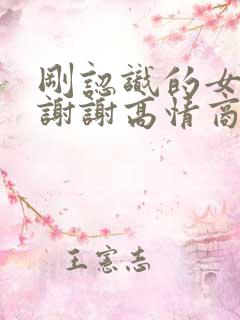 剛認識的女
謝謝高情商
王憲志